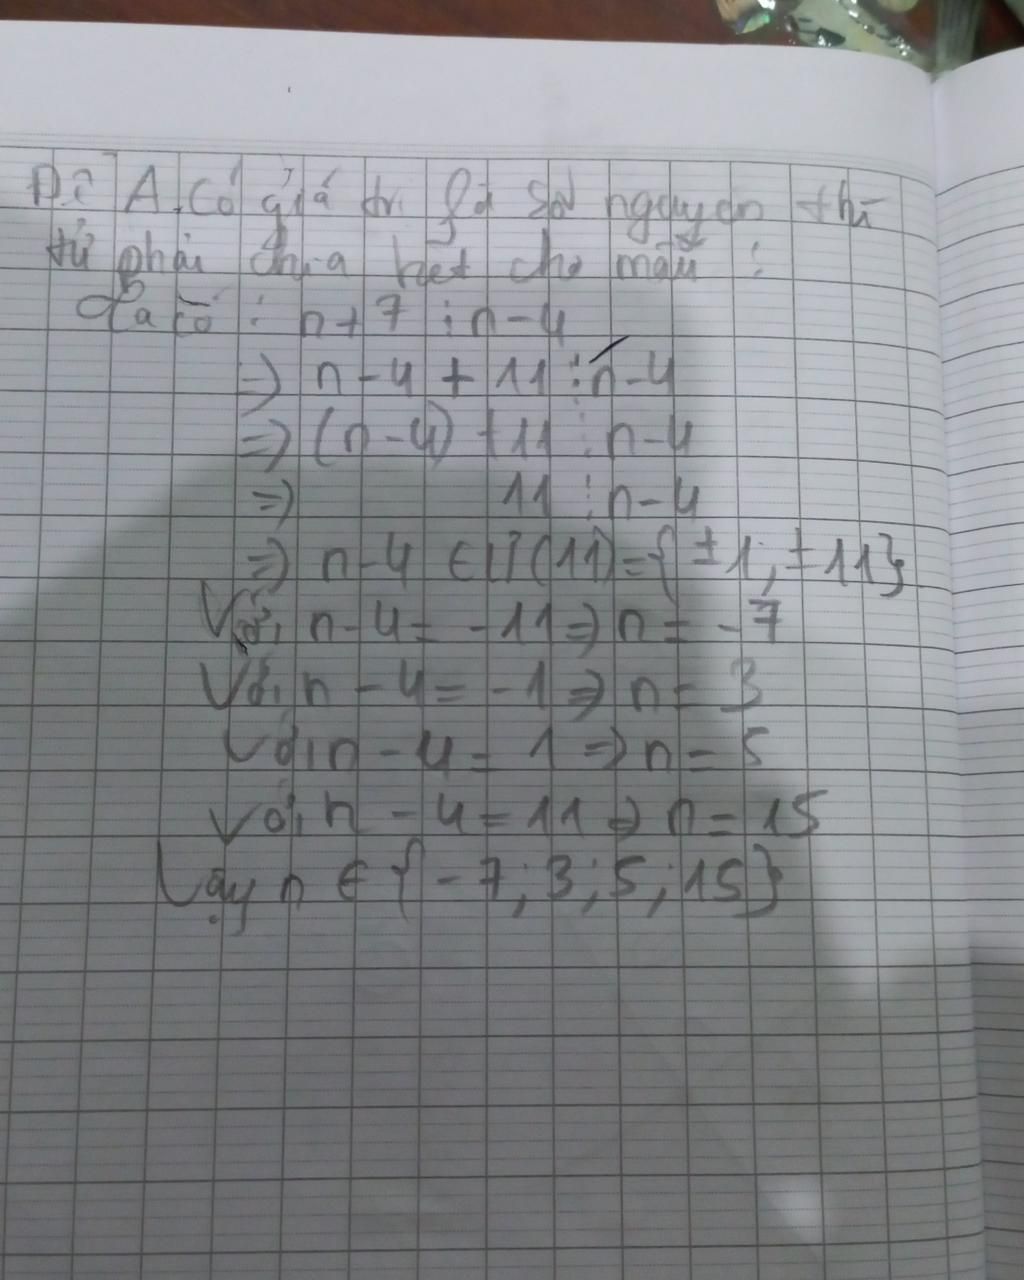 Để A có giá trị là số nguyên thì
tử phải chia hết cho mẫu :
Ta có : n+7 ⋮ n-4
=> n-4 + 11 ⋮ n-4
=> (n-4) +11 ⋮ n-4
=> 11 ⋮ n-4
=> n-4 ∈ Ư(11)={±1; ±11}
Với n-4= -11=> n= -7
Với n-4= -1 => n= 3
Với n-4= 1 => n= 5
Với n-4= 11 => n= 15
Vậy n ∈ {-7; 3; 5; 15}